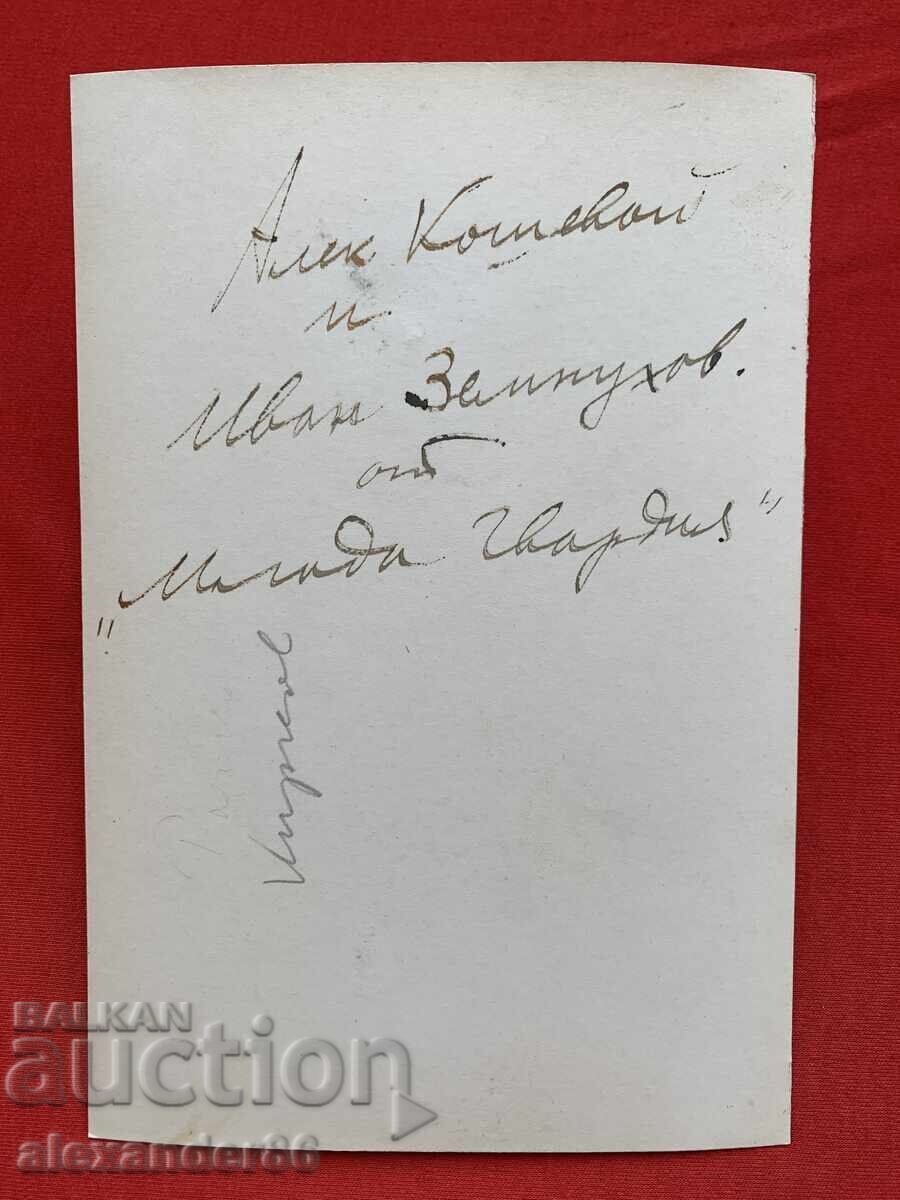 Алек Кошевой
и
Иван Земнухов.
от
„Млада Гвардия"
BALKAN
auction
alexander86